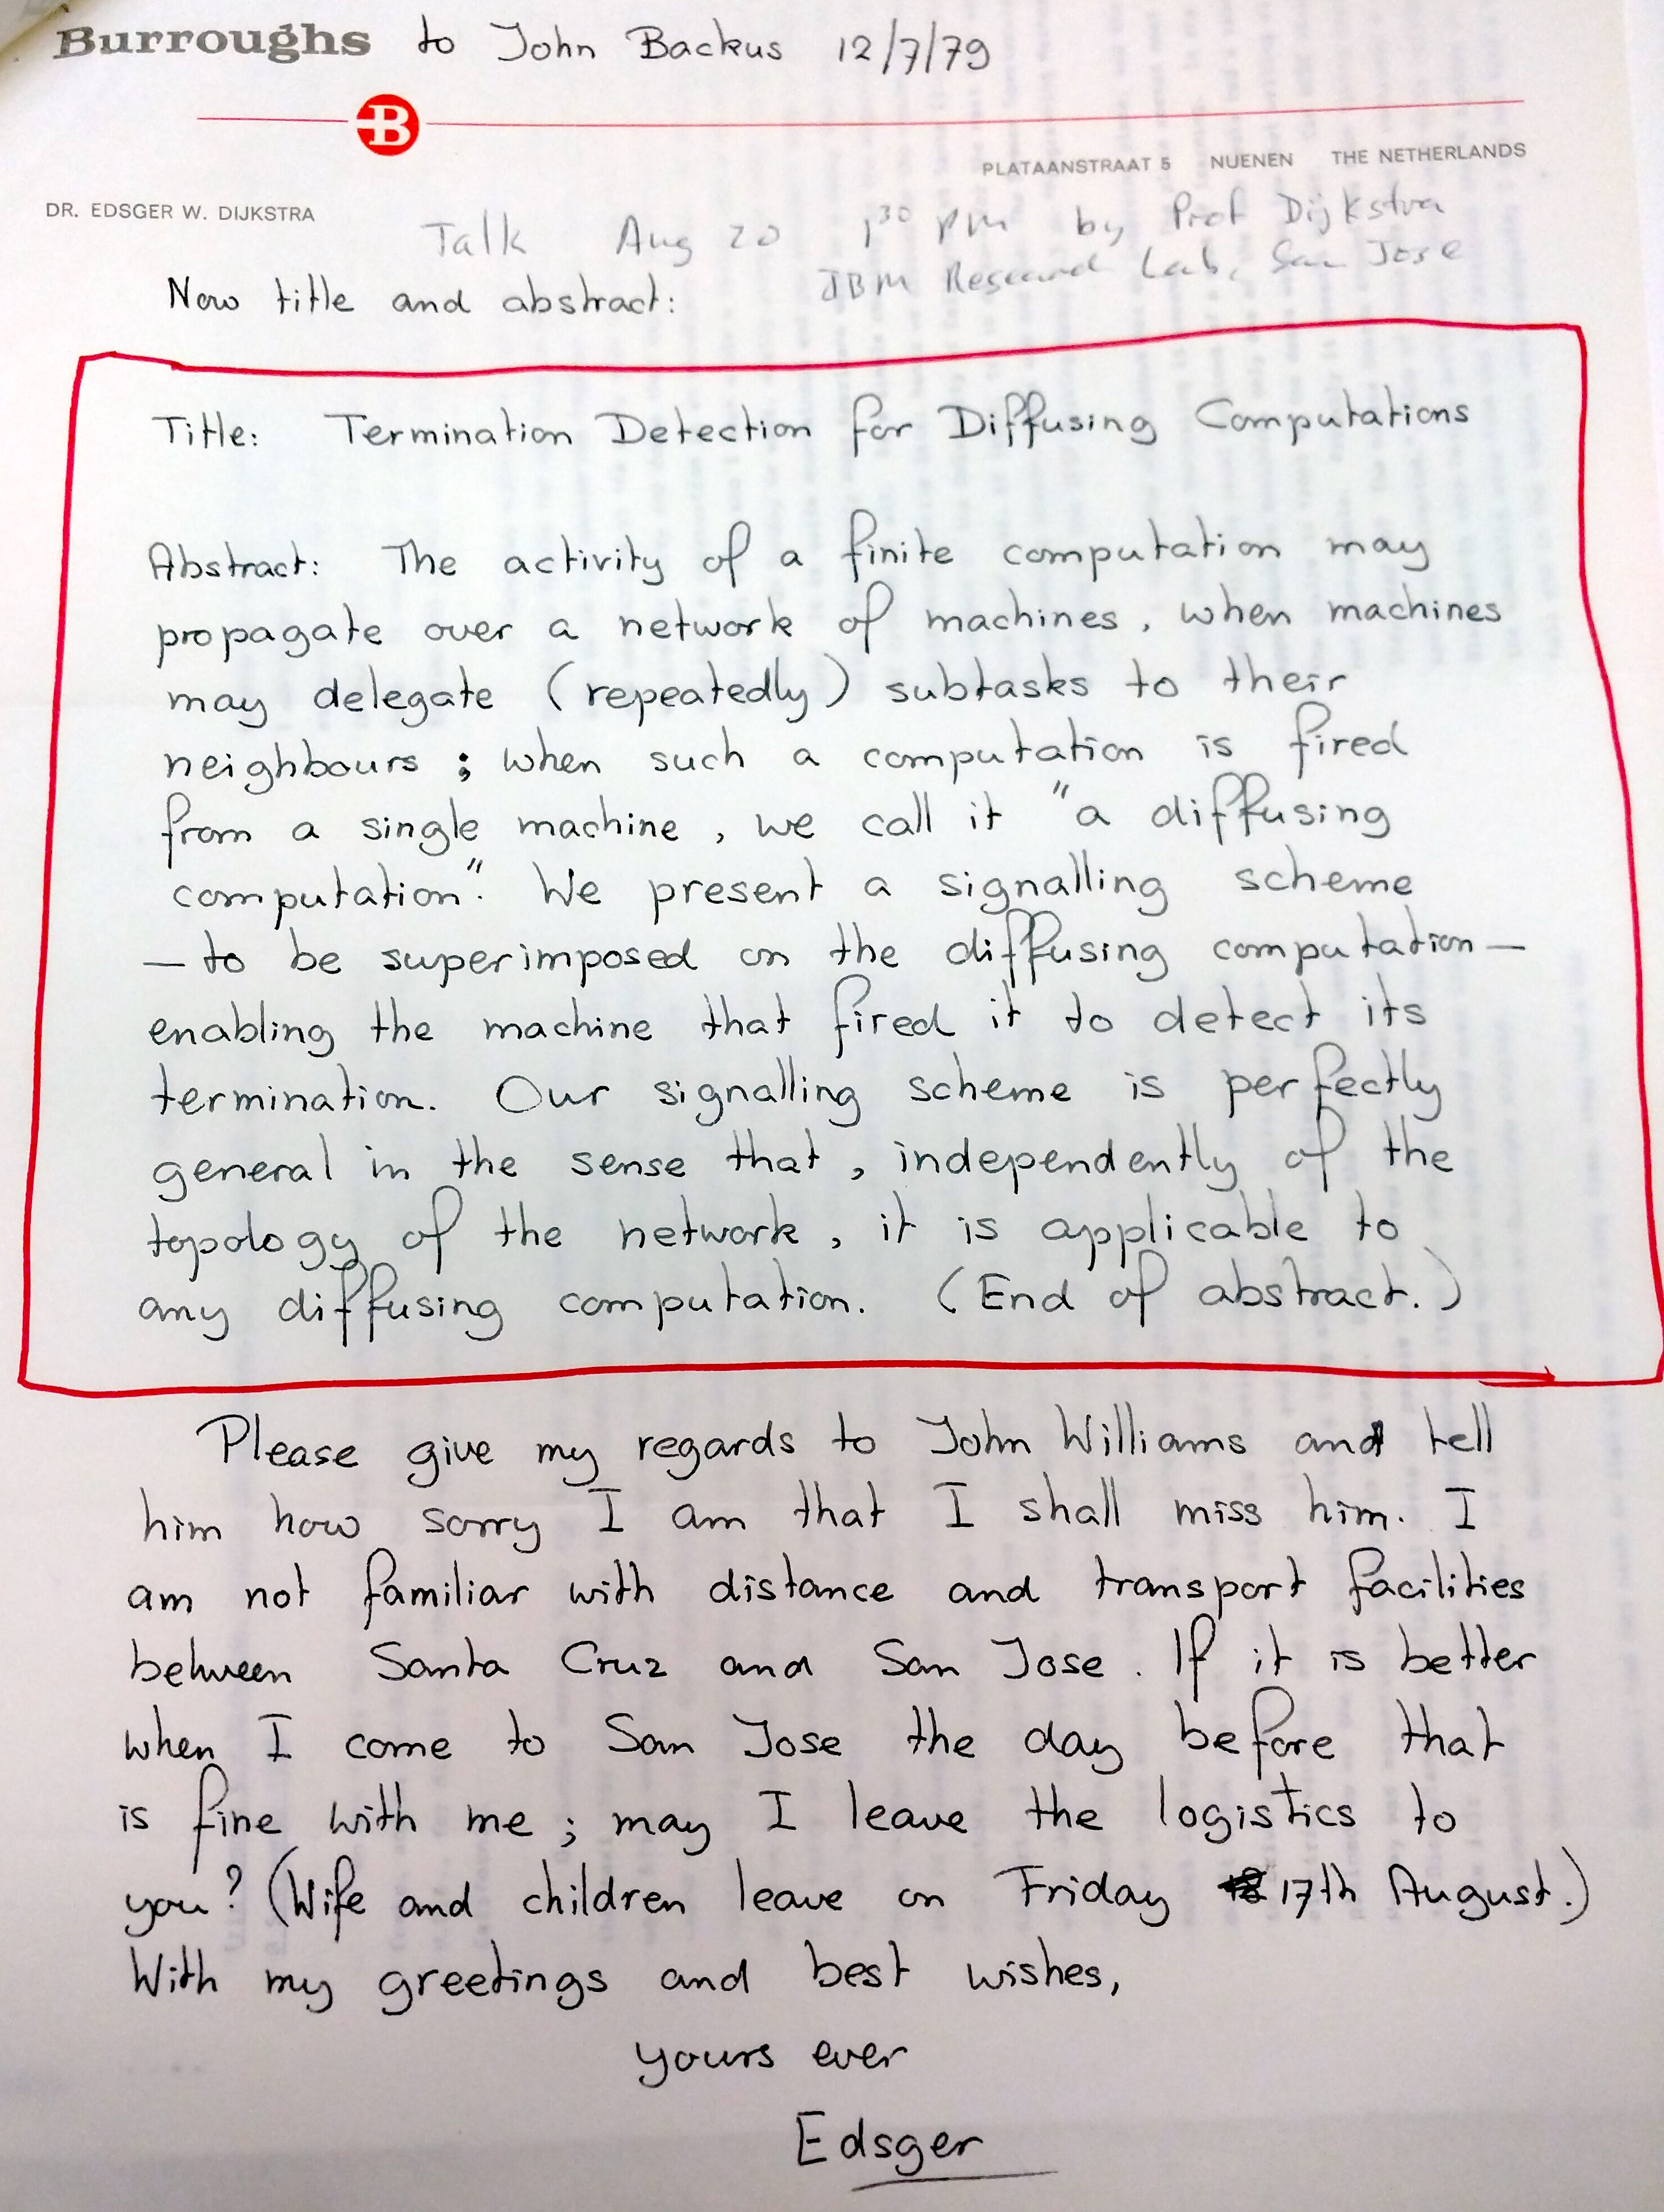 Burroughs to John Backus 12/7/79
B
PLATAANSTRAAT 5 NUENEN THE NETHERLANDS
DR. EDSGER W. DIJKSTRA
Talk Aug 20 1³⁰ PM by Prof Dijkstra
IBM Research Lab, San Jose
Now title and abstract:
Title: Termination Detection for Diffusing Computations
Abstract: The activity of a finite computation may
propagate over a network of machines, when machines
may delegate (repeatedly) subtasks to their
neighbours; when such a computation is fired
from a single machine, we call it "a diffusing
computation". We present a signalling scheme
—to be superimposed on the diffusing computation—
enabling the machine that fired it to detect its
termination. Our signalling scheme is perfectly
general in the sense that, independently of the
topology of the network, it is applicable to
any diffusing computation. (End of abstract.)
Please give my regards to John Williams and tell
him how sorry I am that I shall miss him. I
am not familiar with distance and transport facilities
between Santa Cruz and San Jose. If it is better
when I come to San Jose the day before that
is fine with me; may I leave the logistics to
you? (Wife and children leave on Friday 17th August.)
With my greetings and best wishes,
yours ever
Edsger